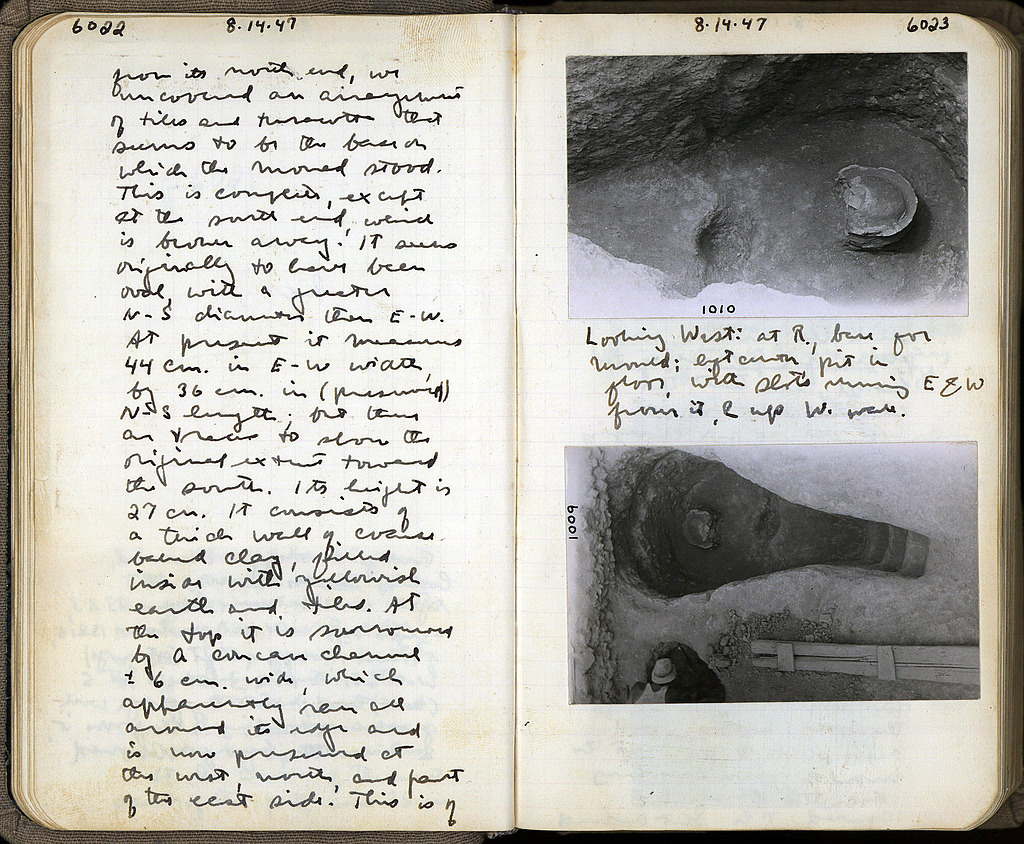 6022 8·14·47
from its north end, we
uncovered an arrangement
of tiles and terracotta that
seems to be the base on
which the mould stood.
This is complete, except
at the south end, which
is broken away. It seems
originally to have been
oval, with a greater
N-S diameter than E-W.
At present it measures
44 cm. in E-W width,
by 36 cm. in (preserved)
N-S length; but there
are traces to show the
original extent toward
the south. Its height is
27 cm. It consists of
a thick wall of coarse
baked clay, filled
inside with yellowish
earth and tiles. At
the top it is surrounded
by a concave channel
± 6 cm. wide, which
apparently ran all
around its edge and
is now preserved at
the west, north, and part
of the east side. This is of
8·14·47 6023
1010
Looking West: at R., base for
mould; left center, pit in
floor, with slots running E & W
from it, & up W. wall.
1009